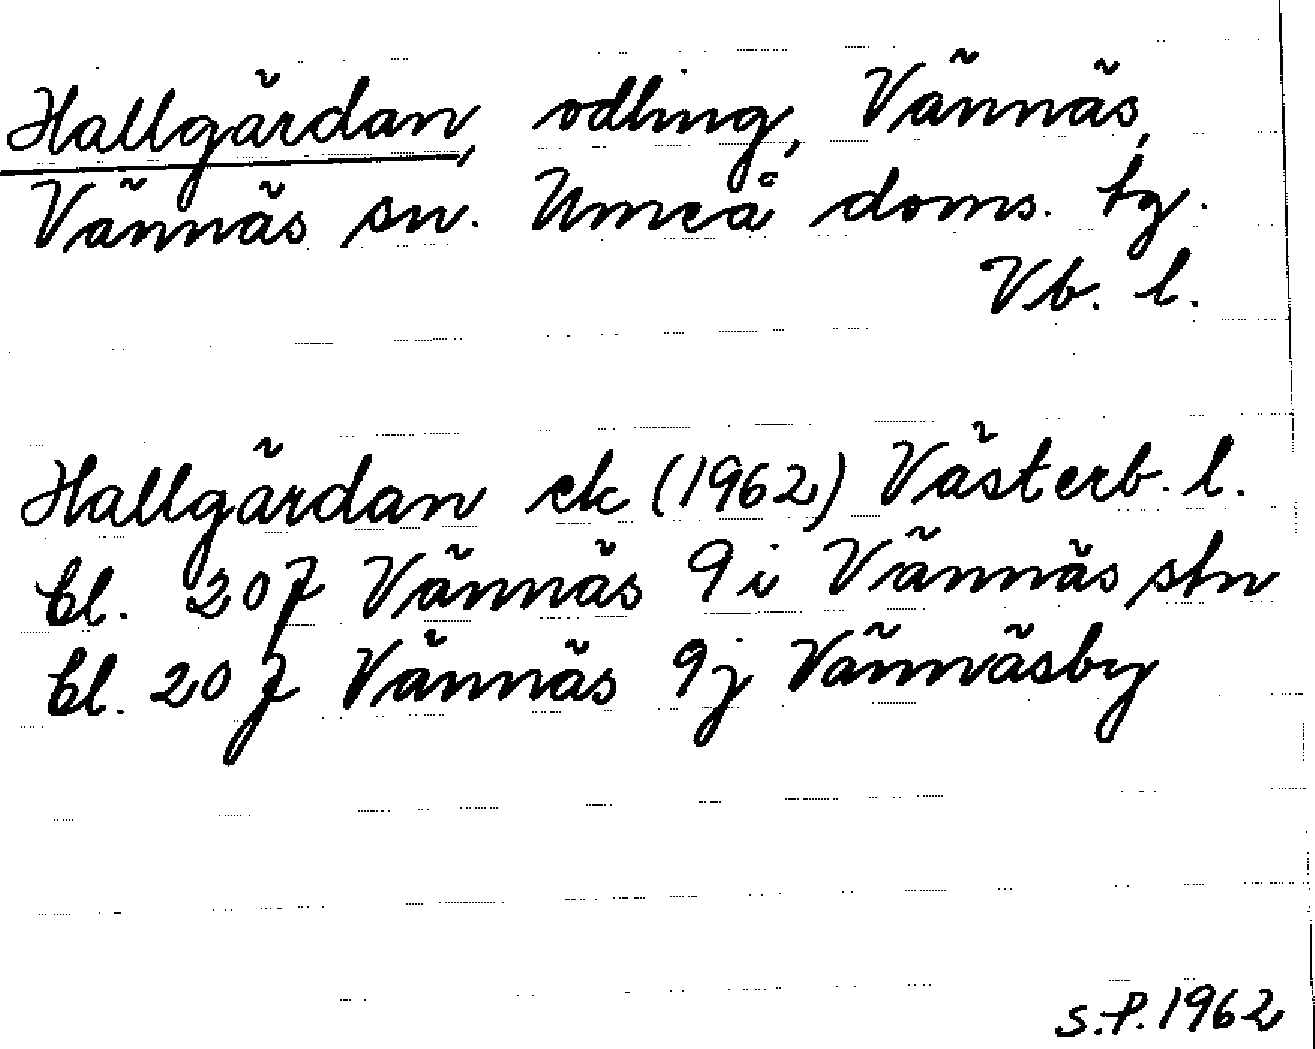 Hallgärdan, odling, Vännäs,
Vännäs sn. Umeå doms. tg.
Vb. l.
Hallgärdan ek (1962) Västerb. l.
bl. 20J Vännäs 9i Vännäs stn
bl. 20J Vännäs 9j Vännäsby
S.P. 1962